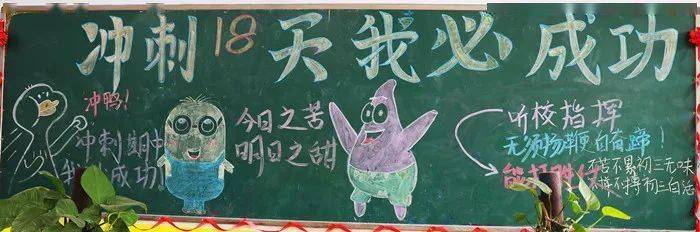 冲刺18天我必成功
冲鸭!
冲刺期中
我必成功
今日之苦
明日之甜
听校指挥
无须扬鞭自奋蹄!
能打胜仗
不苦不累初三无味
不拼不搏初三白活